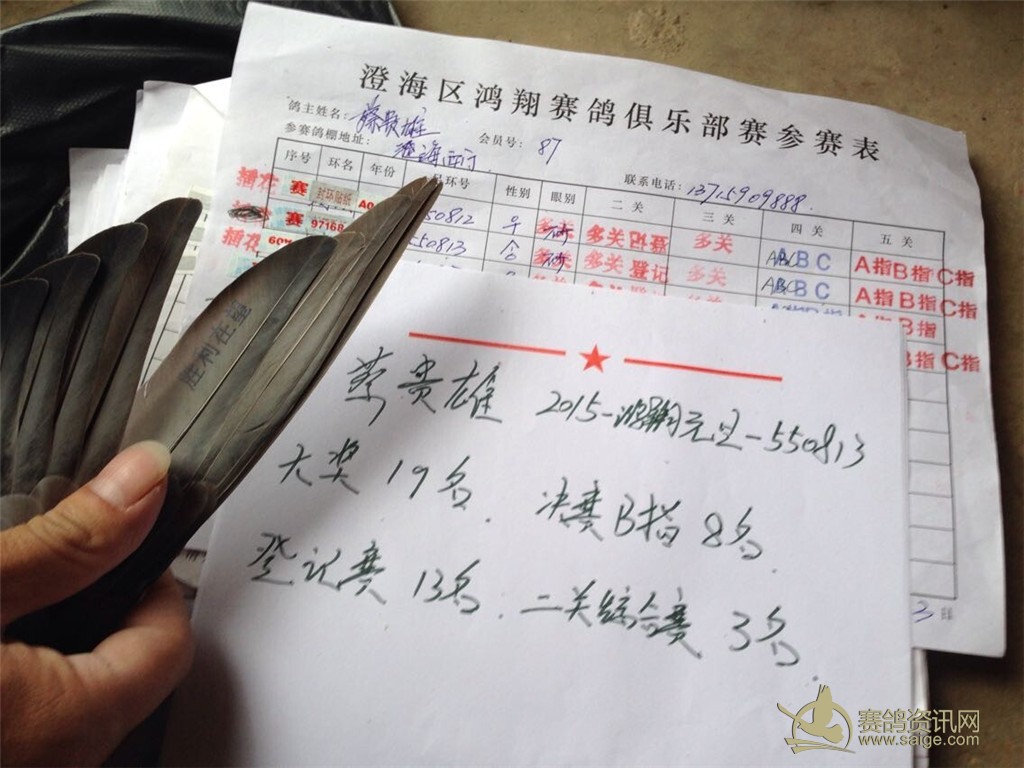 澄海区鸿翔赛鸽俱乐部赛参赛表
鸽主姓名: 蔡贵雄 会员号: 87
参赛鸽棚地址: 澄海 联系电话: 13715909888.
序号 环名 年份 环号 性别 眼别 二关 三关 四关 五关
插花 赛 封环贴纸 A0 550812 多关 多关 多关 ABC A指 B指 C指
赛 97168 50813 多关 多关 登记 多关 ABC A指 B指 C指
插花 60%
A指 B指
B指 C指
胜利在望
蔡贵雄 2015-鸿翔元旦-550813
大奖 19名. 决赛B指 8名.
登记赛 13名. 二关综合赛 3名.
3
赛鸽资讯网
www.saige.com